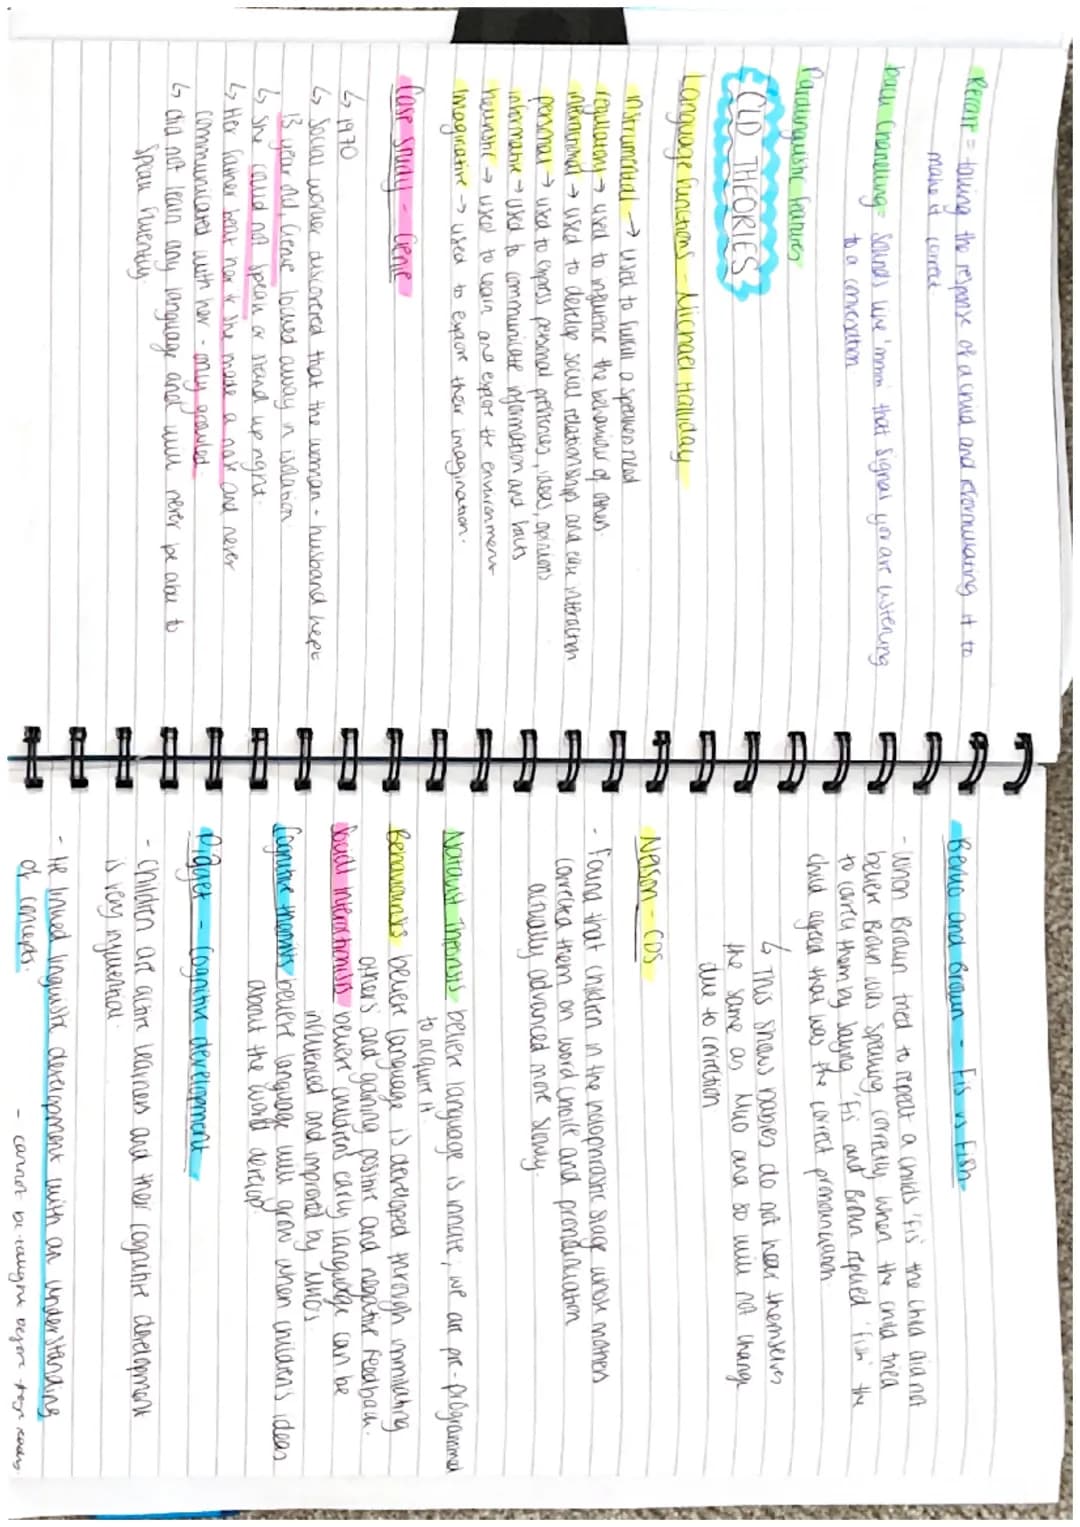 Recast = taking the response of a child and reformulating it to
make it correct.
back channelling = sounds like 'mmm' that signal you are listening
to a conversation
Paralinguistic features
CLD THEORIES
Language functions - Michael Halliday
instrumental → used to fulfill a speaker need
regulatory → used to influence the behaviour of others.
interactional → used to develop social relationships and ease interaction
personal → used to express personal prefences, ideas, opinions
informative → used to communicate information and facts
heuristic → used to learn and explore the environment
imaginative → used to explore their imagination.
Case study - Genie
↳ 1970
↳ Social worker discovered that the woman - husband kept
13 year old, Genie locked away in isolation
↳ She could not speak or stand up right.
↳ Her father beat her if she made a noise and never
communicated with her - only growled.
↳ did not learn any language and will never be able to
speak fluently.
Berko and Brown - Fis vs Fish
- When Brown tried to repeat a childs 'fis' the child did not
believe Brown was speaking correctly when the child tried
to correct them by saying 'fis' and Brown replied 'fish' the
child agreed that was the correct pronounciation
↳ This shows babies do not hear themselves
the same as MKO and so will not change
due to correction
Nelson - CDS
- found that children in the holophrastic stage whose mothers
corrected them on word choice and pronounciation
actually advanced more slowly.
Nativist Theorists believe language is innate; we are pre-programmed
to acquire it.
Behaviourists believe language is developed through immitating
others and gaining positive and negative feedback.
Social interactionists believe childrens early language can be
influenced and improved by MKOs
Cognitive theorists believe language will grow when childrens ideas
about the world develop
Piaget - Cognitive development
- Children are active learners and their cognitive development
is very influential.
- He linked linguistic development with an understanding
of concepts.
- cannot be taught before they ready.